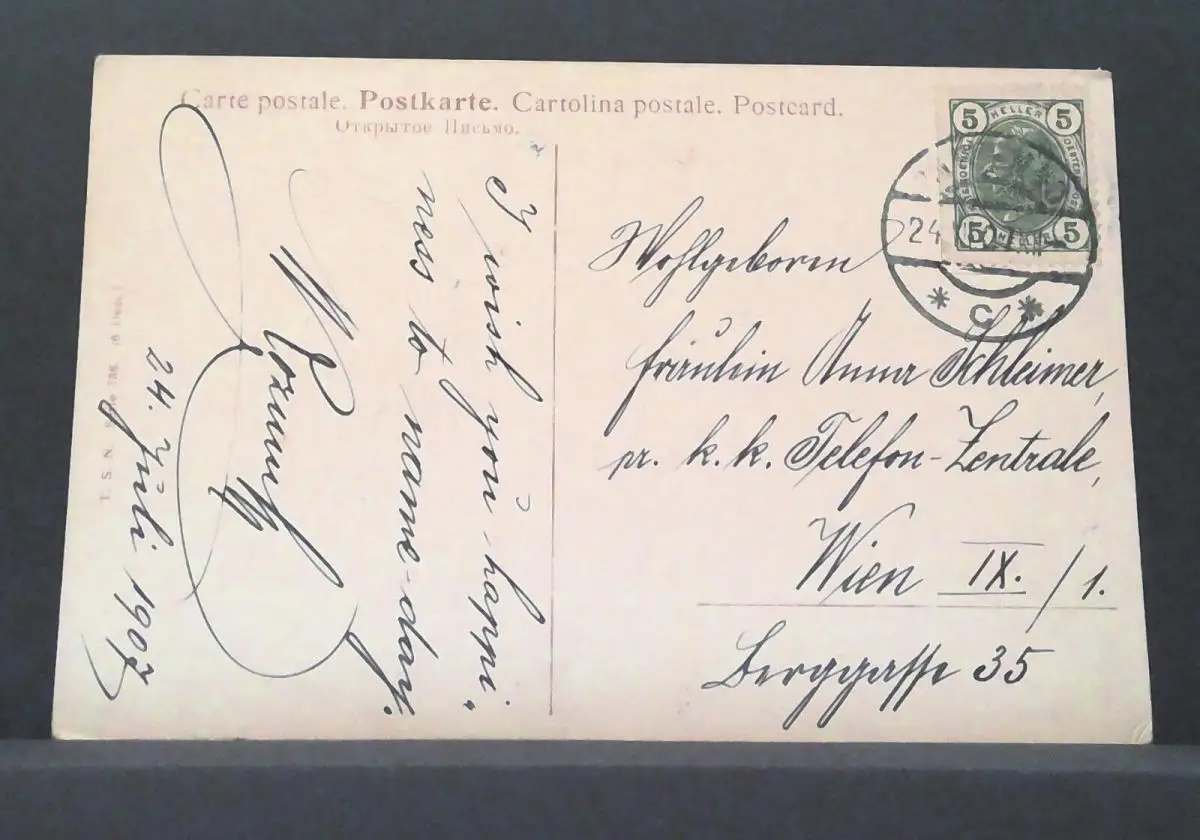 Carte postale. Postkarte. Cartolina postale. Postcard.
Открытое Письмо.
I wish you happi„
ness to name-day.
24. Juli 1907
T. S. N.
Wohlgeboren
Fräulein Anna Schleimer,
pr. k. k. Telefon-Zentrale,
Wien IX./1.
Berggasse 35
5 HELLER 5
5 HELLER 5
24
* C *